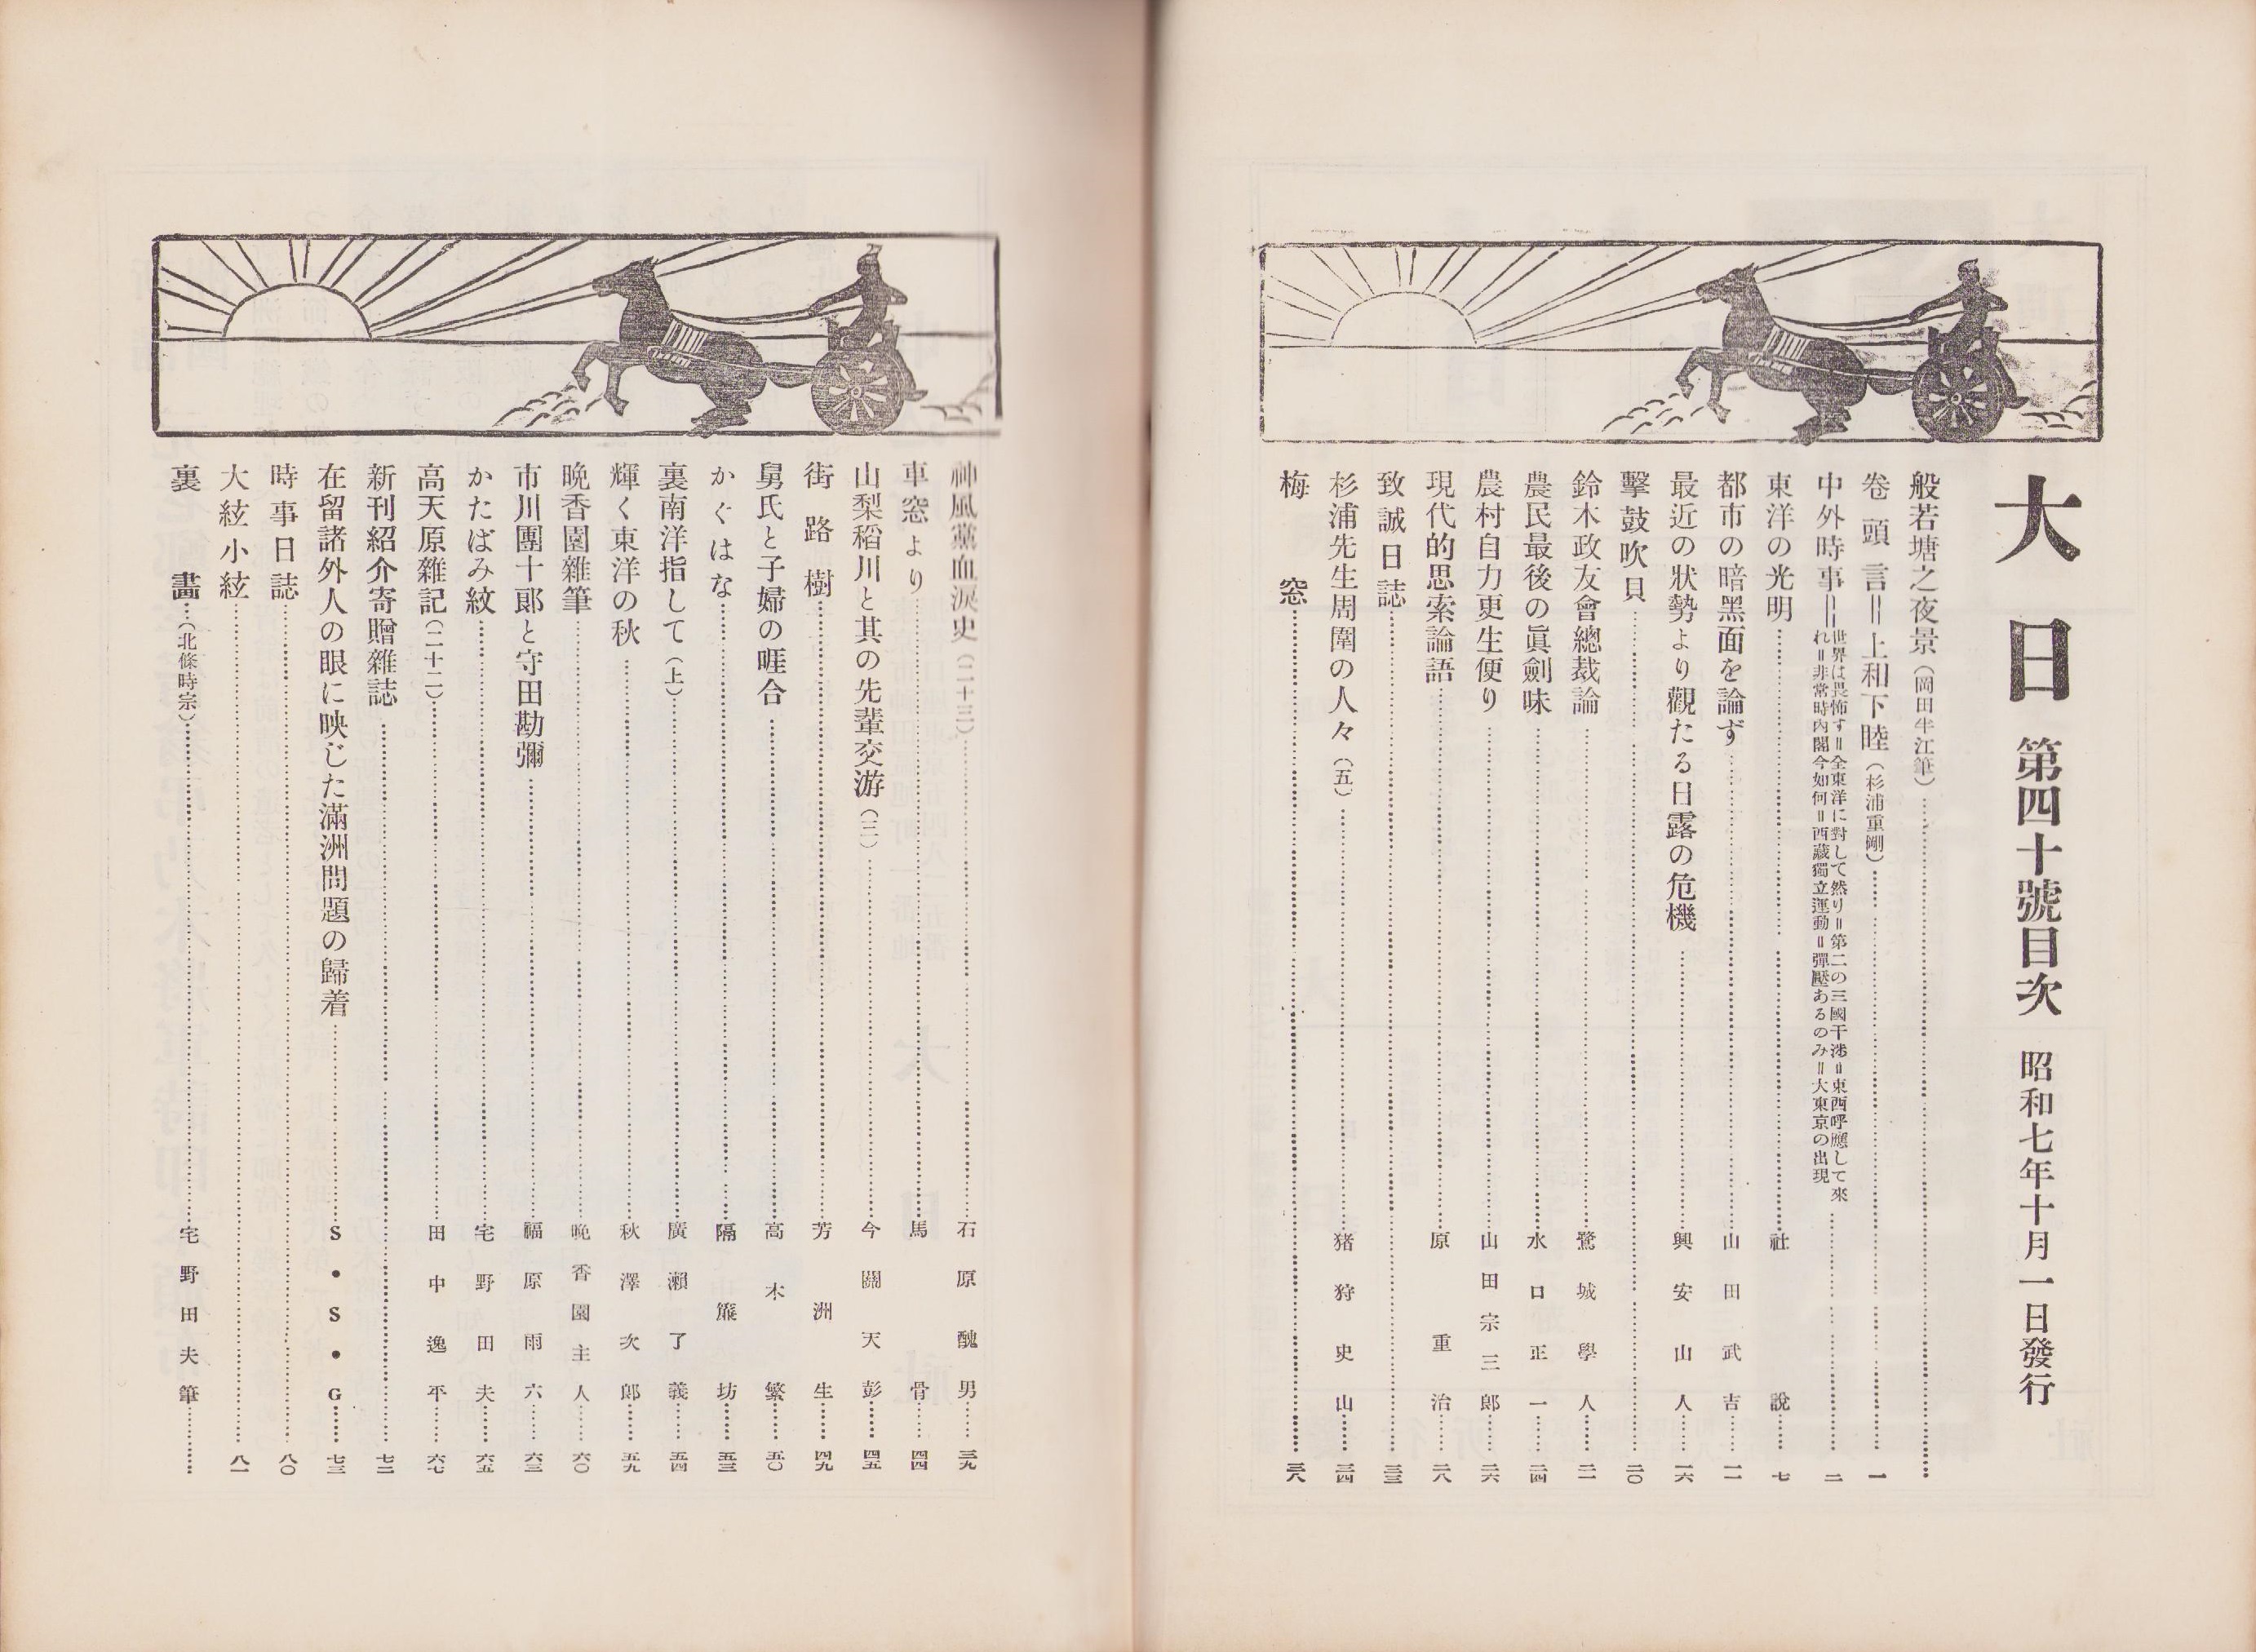 大日 第四十號目次 昭和七年十月一日發行
般若塘之夜景（岡田半江筆）
卷頭言＝上和下睦（杉浦重剛）……一
中外時事＝世界は畏怖す＝全東洋に對して然り＝第二の三國干涉＝東西呼應して來
れ＝非常時內閣今如何＝西藏獨立運動＝彈壓あるのみ＝大東京の出現……二
東洋の光明……社說……七
都市の暗黑面を論ず……山田武吉……一一
最近の狀勢より觀たる日露の危機……興安山人……一六
擊鼓吹貝……二〇
鈴木政友會總裁論……鷺城學人……二一
農民最後の眞劍味……水口正一……二四
農村自力更生便り……山田宗三郎……二六
現代的思索論語……原重治……二八
致誠日誌……三三
杉浦先生周圍の人々（五）……猪狩史山……三四
梅窓……三八
神風黨血淚史（二十三）……石原醜男……三九
車窓より……馬骨……四四
山梨稻川と其の先輩交游（三）……今關天彭……四五
街路樹……芳洲生……四九
舅氏と子婦の啀合……高木繁……五〇
かぐはな……隔簾坊……五三
裏南洋指して（上）……廣瀨了義……五四
輝く東洋の秋……秋澤次郎……五九
晩香園雜筆……晩香園主人……六〇
市川團十郞と守田勘彌……福原雨六……六三
かたばみ紋……宅野田夫……六五
高天原雜記（二十二）……田中逸平……六七
新刊紹介寄贈雜誌……七二
在留諸外人の眼に映じた滿洲問題の歸着……S・S・G……七三
時事日誌……八〇
大絃小絃……八一
裏畫…（北條時宗）……宅野田夫筆……